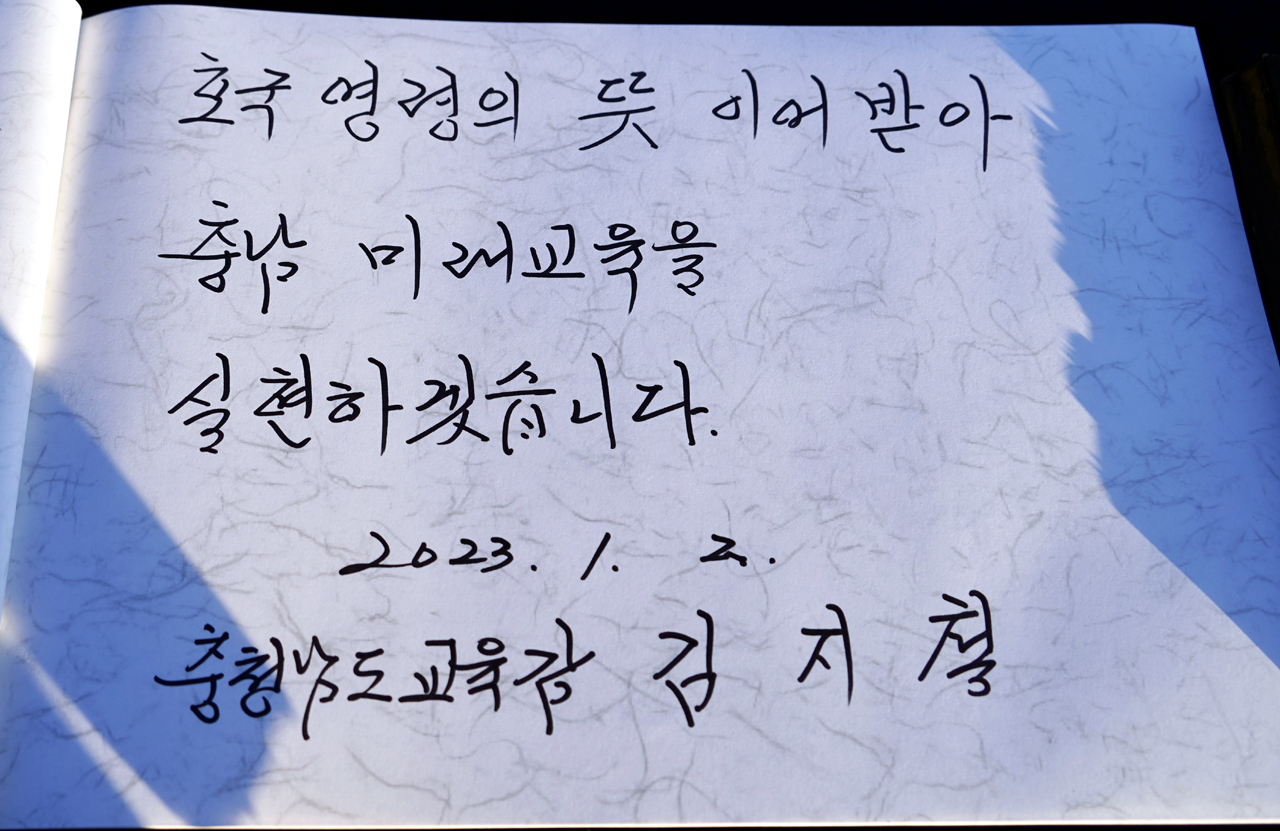 호국영령의 뜻 이어받아
충남 미래교육을
실현하겠습니다.
2023. 1. 2.
충청남도교육감 김지철